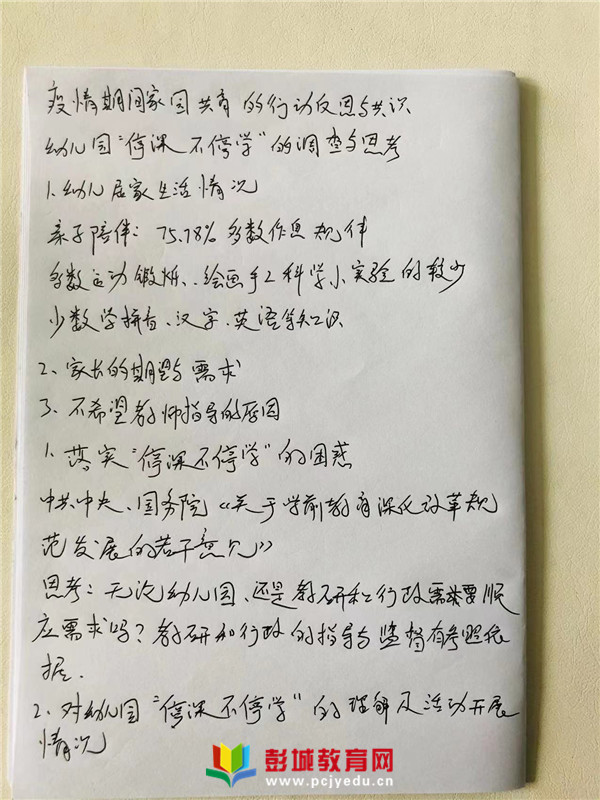 疫情期间家园共育的行动反思与共识
幼儿园“停课不停学”的调查与思考
1.幼儿居家生活情况
亲子陪伴:75.78%多数作息规律
多数主动锻炼、绘画手工科学小实验的较少
少数学拼音、汉字、英语等知识
2、家长的期望与需求
3、不希望教师指导的原因
1、落实“停课不停学”的困惑
中共中央、国务院《关于学前教育深化改革规
范发展的若干意见》
思考:无论幼儿园、还是教研和行政需要顺
应需求吗?教研和行政的指导与监督有参照依
据.
2、对幼儿园“停课不停学”的理解及活动开展
情况
彭城教育网
www.pcjyedu.cn